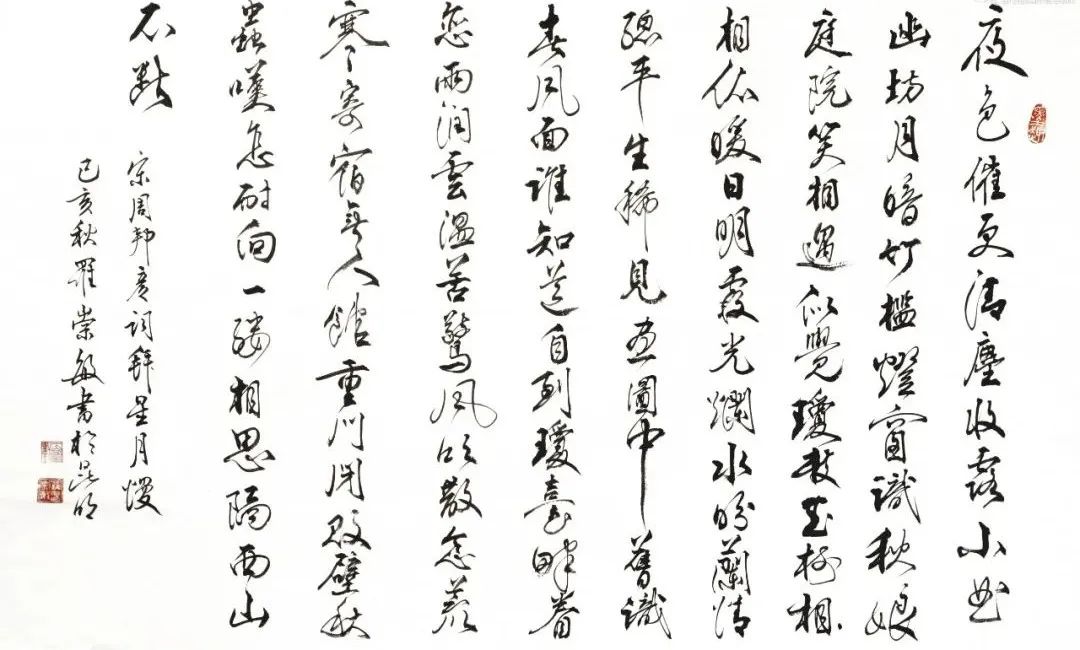 夜色催更清塵收露小曲
幽坊月暗竹檻燈窗識秋娘
庭院笑相遇似覺瓊枝玉樹相
相依暖日明霞光爛水盼蘭情
總平生稀見畫圖中舊識
春風面誰知道自到瓊臺畔眷
戀雨潤雲溫苦驚風吹散念荒
寒寄宿無人館重門閉敗壁秋
蟲嘆怎耐向一縷相思隔西山
不斷
宋周邦彥詞拜星月慢
己亥秋羅崇敏書於昆明